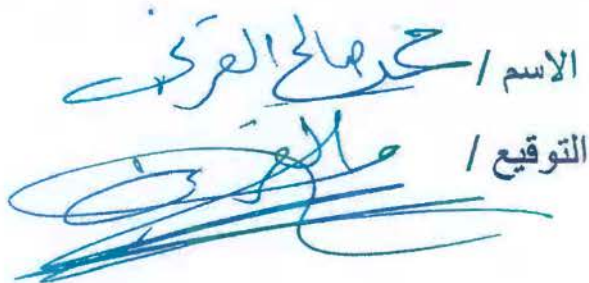 الاسم / محمد صالح القرني
التوقيع /